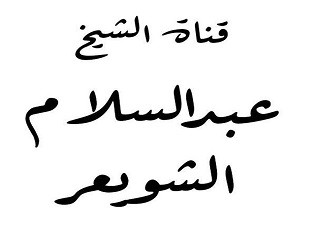 قناة الشيخ
عبدالسلام
الشويعر